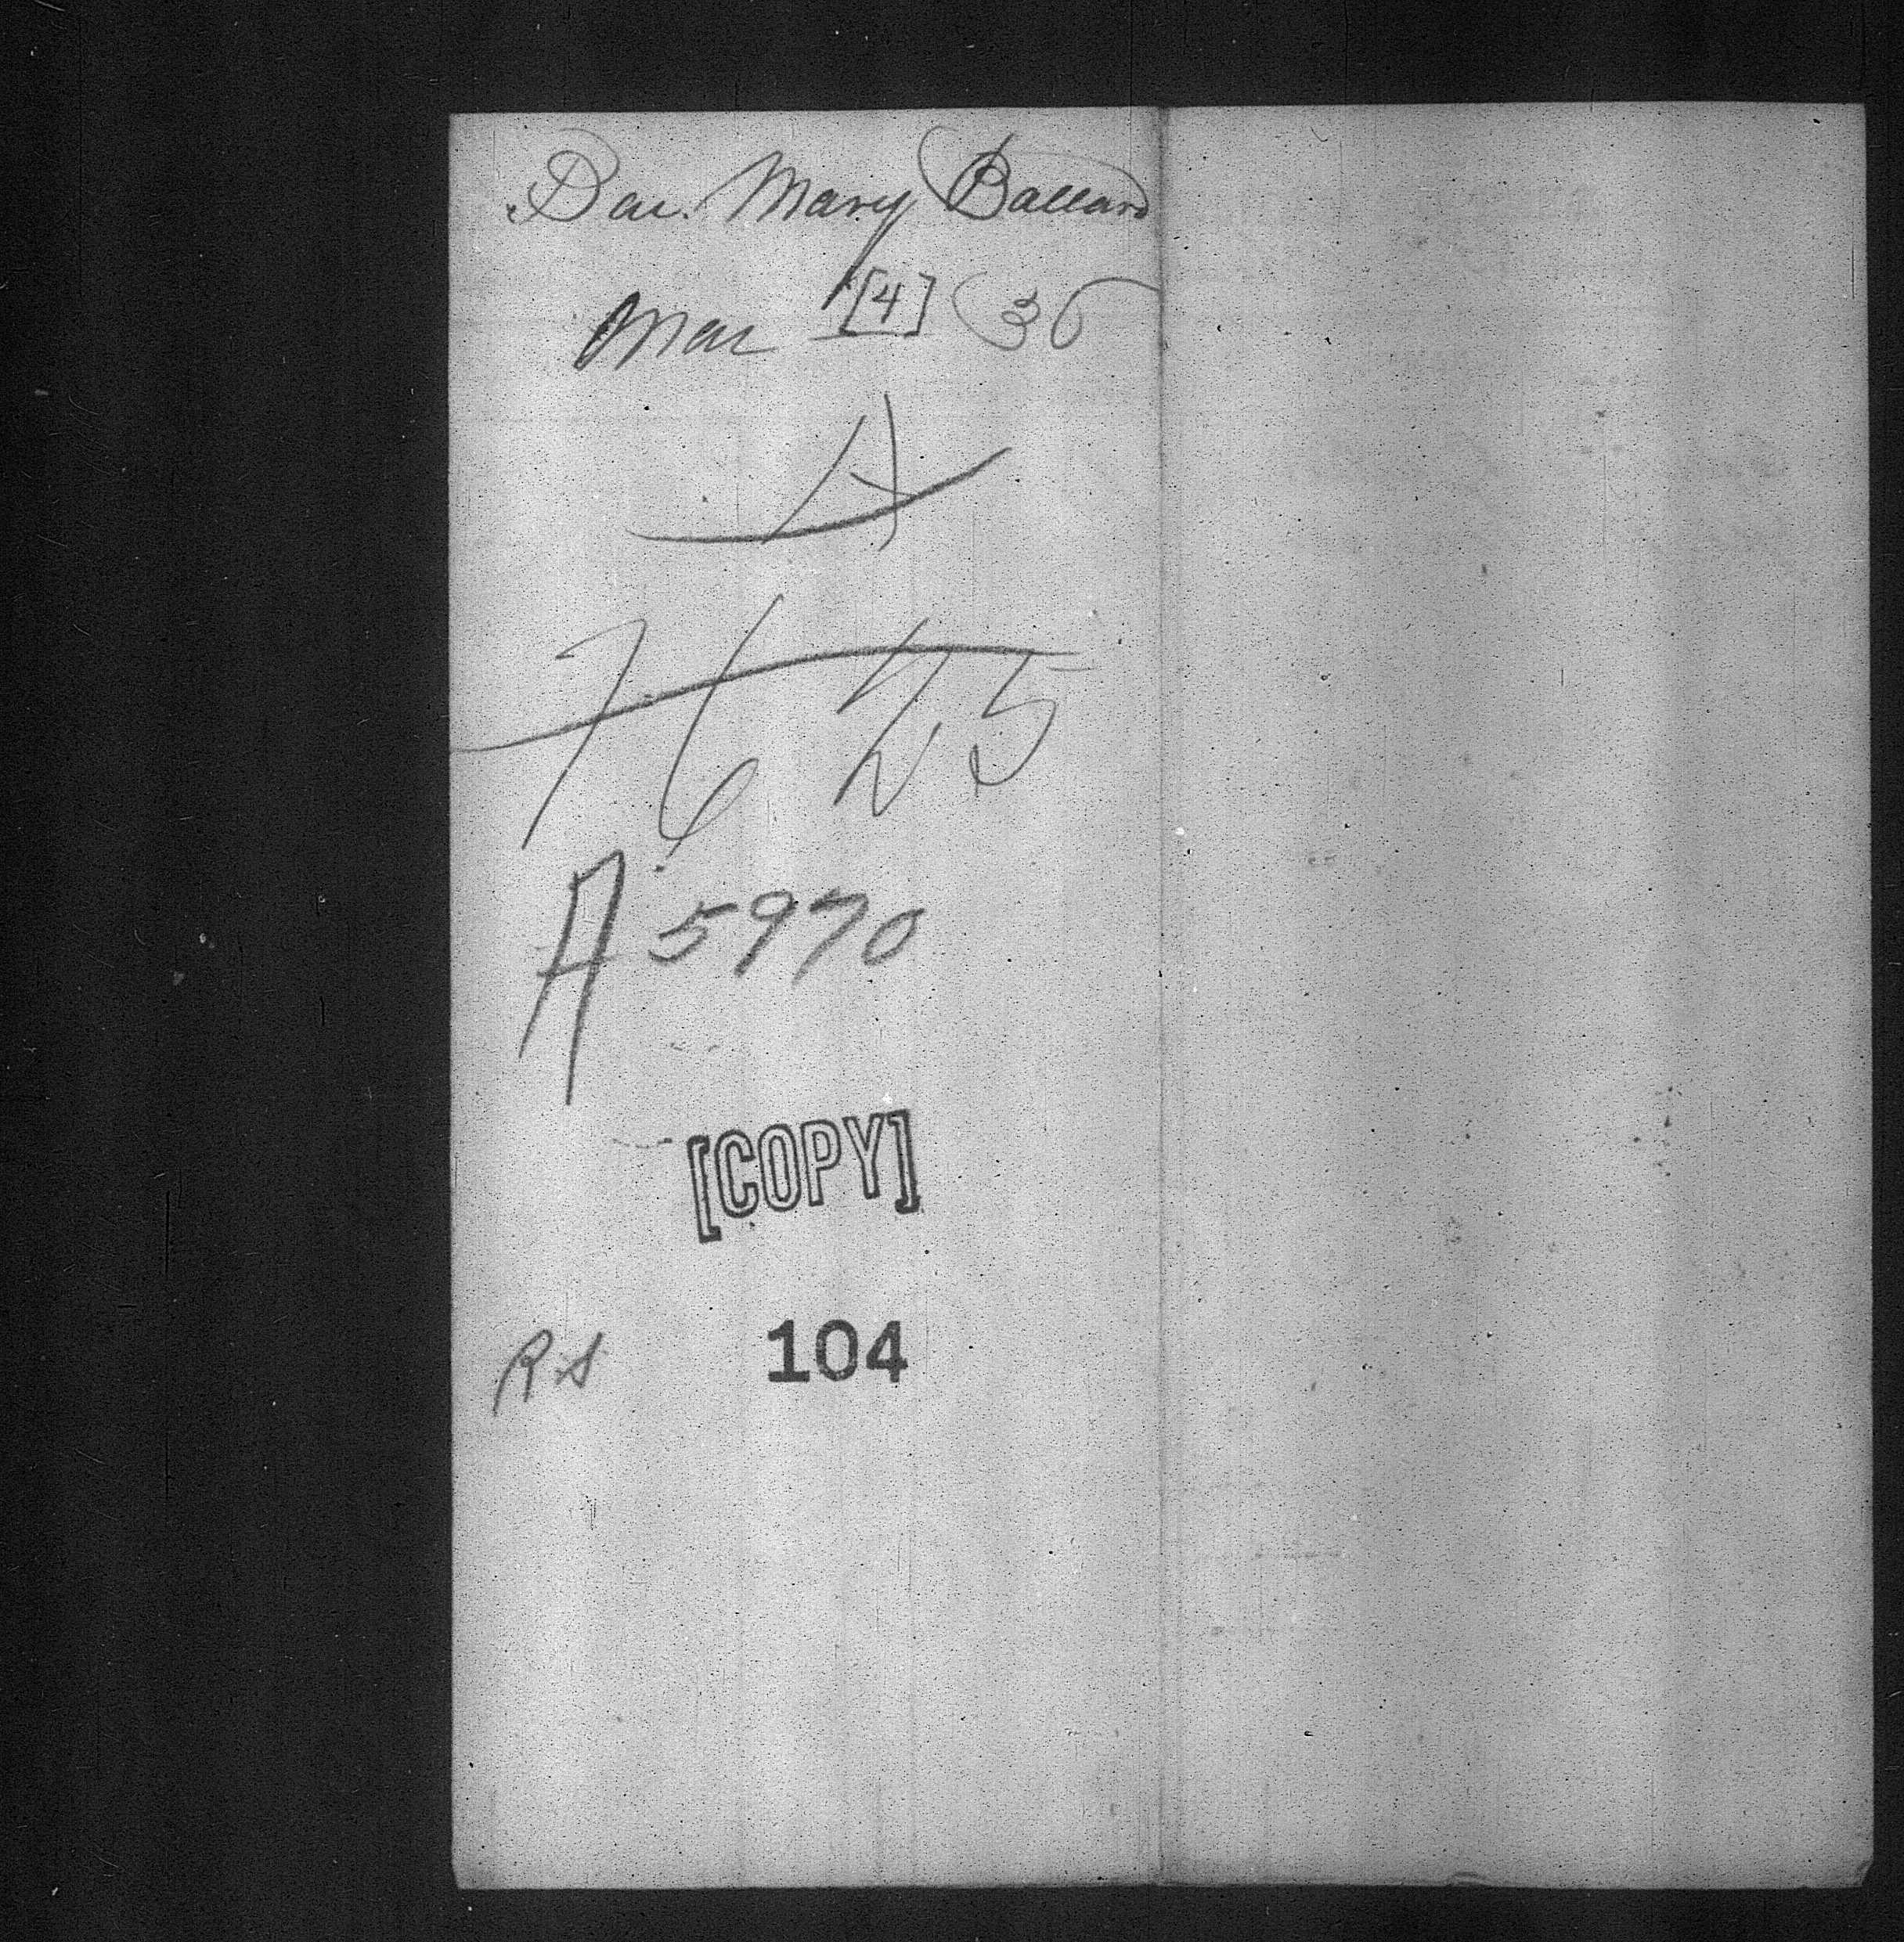 Dar. Mary Ballard
Mar 1 [4] 36
A
7625
A 5970
[COPY]
RS 104